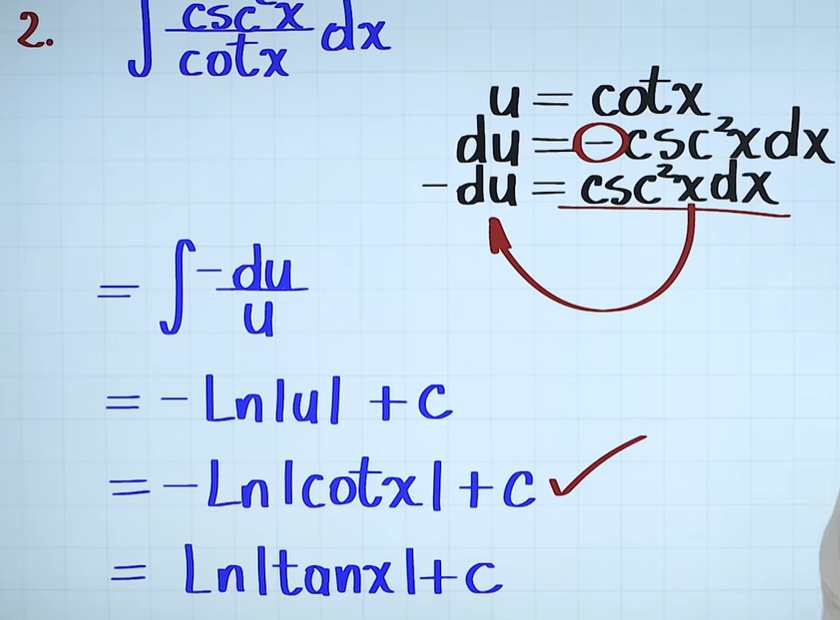 2. ∫ csc²x/cotx dx
u = cotx
du = -csc²xdx
-du = csc²xdx
= ∫ -du/u
= -Ln|u| + c
= -Ln|cotx| + c ✓
= Ln|tanx| + c